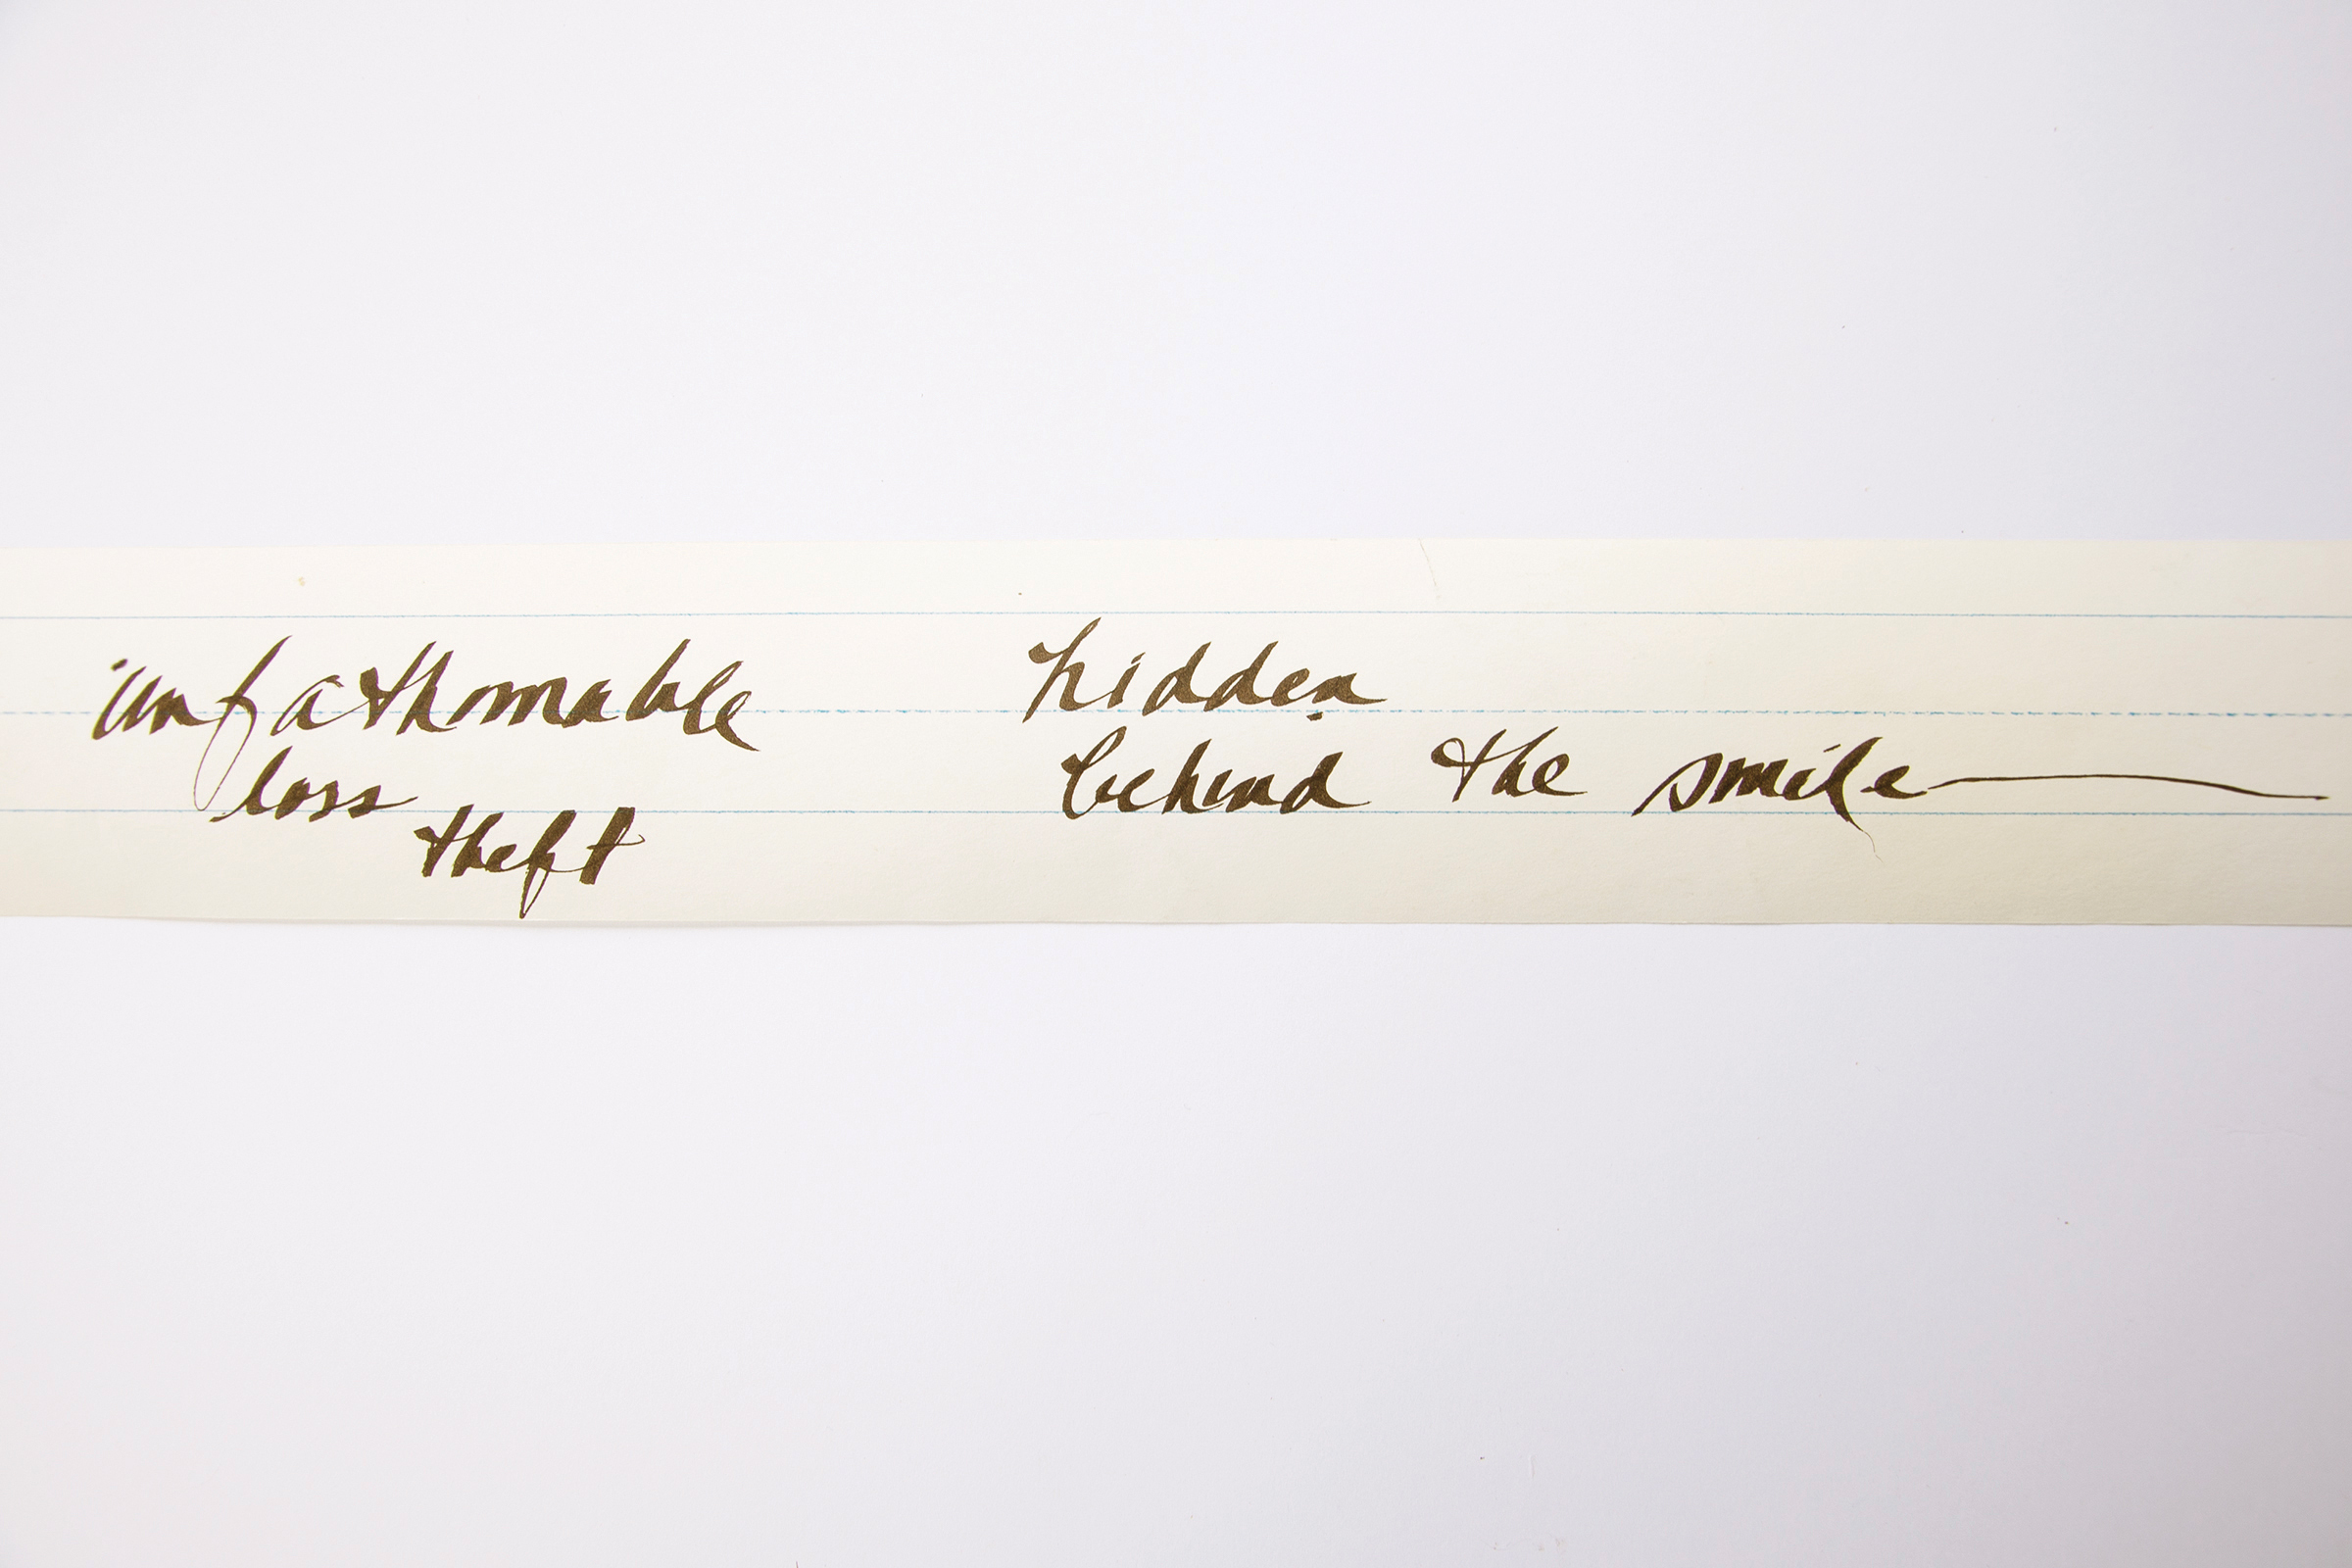 unfathomable
loss
theft
hidden
behind the smile